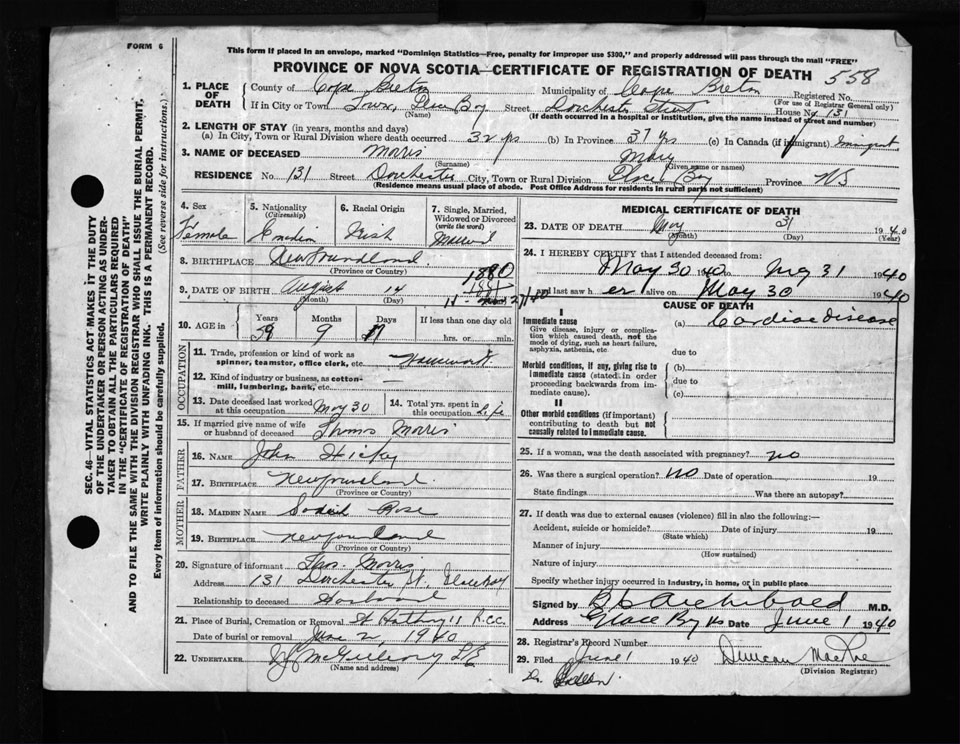 FORM 6
This form if placed in an envelope, marked "Dominion Statistics—Free, penalty for improper use $300," and properly addressed will pass through the mail "FREE"
PROVINCE OF NOVA SCOTIA—CERTIFICATE OF REGISTRATION OF DEATH 558
1. PLACE OF DEATH
County of Cape Breton Municipality of Cape Breton Registered No.
(For use of Registrar General only)
If in City or Town Town, Glace Bay Street Dorchester Street House No 131
(Name) (If death occurred in a hospital or institution, give the name instead of street and number)
2. LENGTH OF STAY (in years, months and days)
(a) In City, Town or Rural Division where death occurred 32 yrs (b) In Province 37 yrs (c) In Canada (if immigrant) Immigrant
3. NAME OF DECEASED Morris Mary
(Surname) (Given name or names)
RESIDENCE No. 131 Street Dorchester City, Town or Rural Division Glace Bay Province NS
(Residence means usual place of abode. Post Office Address for residents in rural parts not sufficient)
4. Sex 5. Nationality (Citizenship) 6. Racial Origin 7. Single, Married, Widowed or Divorced (write the word)
Female Irish Married
8. BIRTHPLACE Newfoundland
(Province or Country)
1880
9. DATE OF BIRTH August 14 1881
(Month) (Day)
10. AGE in Years Months Days If less than one day old
59 9 17 hrs. or min.
OCCUPATION
11. Trade, profession or kind of work as spinner, teamster, office clerk, etc. Housework
12. Kind of industry or business, as cotton-mill, lumbering, bank, etc. —
13. Date deceased last worked at this occupation May 30 14. Total yrs. spent in this occupation Life
15. If married give name of wife or husband of deceased Thomas Morris
FATHER
16. NAME John Hickey
17. BIRTHPLACE Newfoundland
(Province or Country)
MOTHER
18. MAIDEN NAME Rose
19. BIRTHPLACE Newfoundland
(Province or Country)
20. Signature of informant Thos. Morris
Address 131 Dorchester St, Glace Bay
Relationship to deceased Husband
21. Place of Burial, Cremation or Removal St Anthony's R.C.C.
Date of burial or removal June 2, 1940
22. UNDERTAKER
(Name and address)
MEDICAL CERTIFICATE OF DEATH
23. DATE OF DEATH May 31 1940
(Month) (Day) (Year)
24. I HEREBY CERTIFY that I attended deceased from:
May 30 1940 to May 31 1940
and last saw h er alive on May 30 1940
CAUSE OF DEATH
I
Immediate cause (a) Cardiac disease
Give disease, injury or complication which caused death, not the mode of dying, such as heart failure, asphyxia, asthenia, etc.
due to
Morbid conditions, if any, giving rise to immediate cause (stated in order proceeding backwards from immediate cause).
(b)
due to
(c)
II
Other morbid conditions (if important) contributing to death but not causally related to immediate cause.
25. If a woman, was the death associated with pregnancy? no
26. Was there a surgical operation? no Date of operation 19
State findings Was there an autopsy?
27. If death was due to external causes (violence) fill in also the following:—
Accident, suicide or homicide? Date of injury 19
(State which)
Manner of injury
(How sustained)
Nature of injury
Specify whether injury occurred in industry, in home, or in public place
Signed by Archibald M.D.
Address Glace Bay NS Date June 1 1940
28. Registrar's Record Number
29. Filed June 1 1940 Duncan MacRae
(Division Registrar)
Dr.
SEC. 46—VITAL STATISTICS ACT MAKES IT THE DUTY
OF THE UNDERTAKER OR PERSON ACTING AS UNDERTAKER
TO OBTAIN ALL THE PARTICULARS REQUIRED
IN THE "CERTIFICATE OF REGISTRATION OF DEATH"
AND TO FILE THE SAME WITH THE DIVISION REGISTRAR WHO SHALL ISSUE THE BURIAL PERMIT,
WRITE PLAINLY WITH UNFADING INK. THIS IS A PERMANENT RECORD.
Every item of information should be carefully supplied. (See reverse side for instructions.)